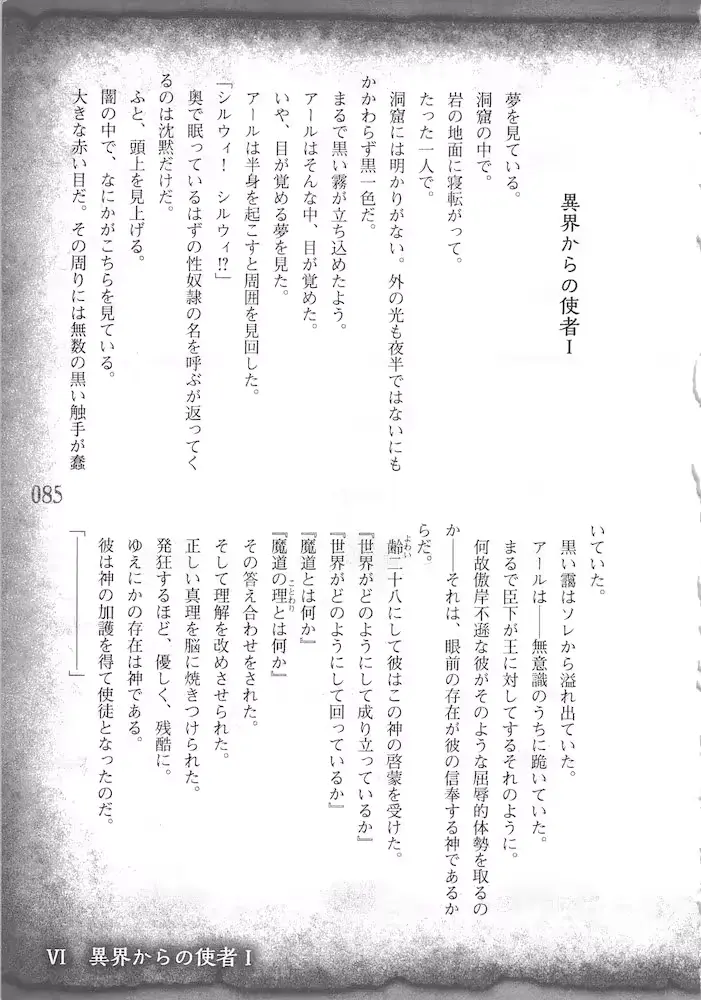 異界からの使者Ⅰ
夢を見ている。
洞窟の中で。
岩の地面に寝転がって。
たった一人で。
洞窟には明かりがない。外の光も夜半ではないにも
かかわらず黒一色だ。
まるで黒い霧が立ち込めたよう。
アールはそんな中、目が覚めた。
いや、目が覚める夢を見た。
アールは半身を起こすと周囲を見回した。
「シルウィ！　シルウィ!?」
奥で眠っているはずの性奴隷の名を呼ぶが返ってく
るのは沈黙だけだ。
ふと、頭上を見上げる。
闇の中で、なにかがこちらを見ている。
大きな赤い目だ。その周りには無数の黒い触手が蠢
いていた。
黒い霧はソレから溢れ出ていた。
アールは――無意識のうちに跪いていた。
まるで臣下が王に対してするそれのように。
何故傲岸不遜な彼がそのような屈辱的体勢を取るの
か――それは、眼前の存在が彼の信奉する神であるか
らだ。
齢二十八にして彼はこの神の啓蒙を受けた。
よわい
『世界がどのようにして成り立っているか』
『世界がどのようにして回っているか』
『魔道とは何か』
『魔道の理とは何か』
ことわり
その答え合わせをされた。
そして理解を改めさせられた。
正しい真理を脳に焼きつけられた。
発狂するほど、優しく、残酷に。
ゆえにかの存在は神である。
彼は神の加護を得て使徒となったのだ。
「――――――」
085
Ⅵ　異界からの使者Ⅰ